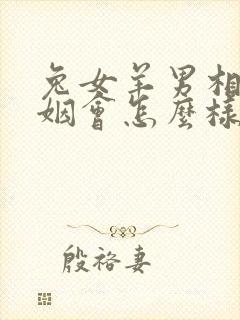 兔女羊男相
姻會怎麼樣
殷褚妻